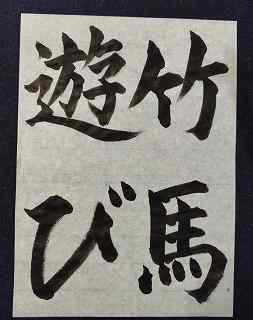 竹馬
遊び